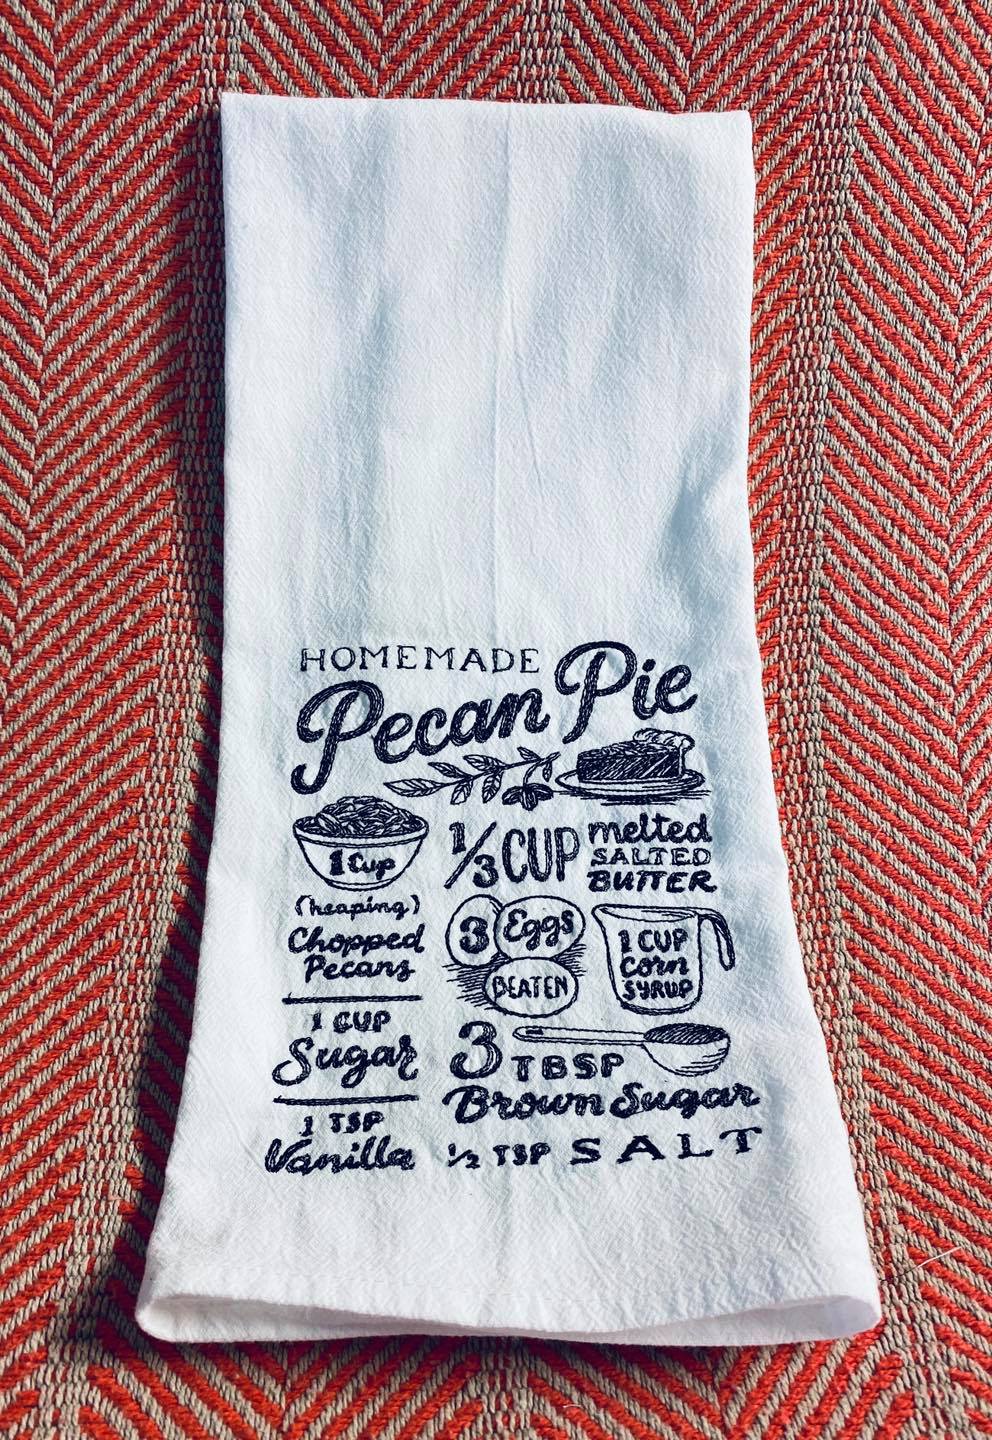 HOMEMADE
Pecan Pie
1 Cup
(heaping)
Chopped
Pecans
1 CUP
Sugar
1 TSP
Vanilla
1/3 CUP
melted
SALTED
BUTTER
3 Eggs
BEATEN
1 CUP
Corn
SYRUP
3 TBSP
Brown Sugar
1/2 TSP SALT